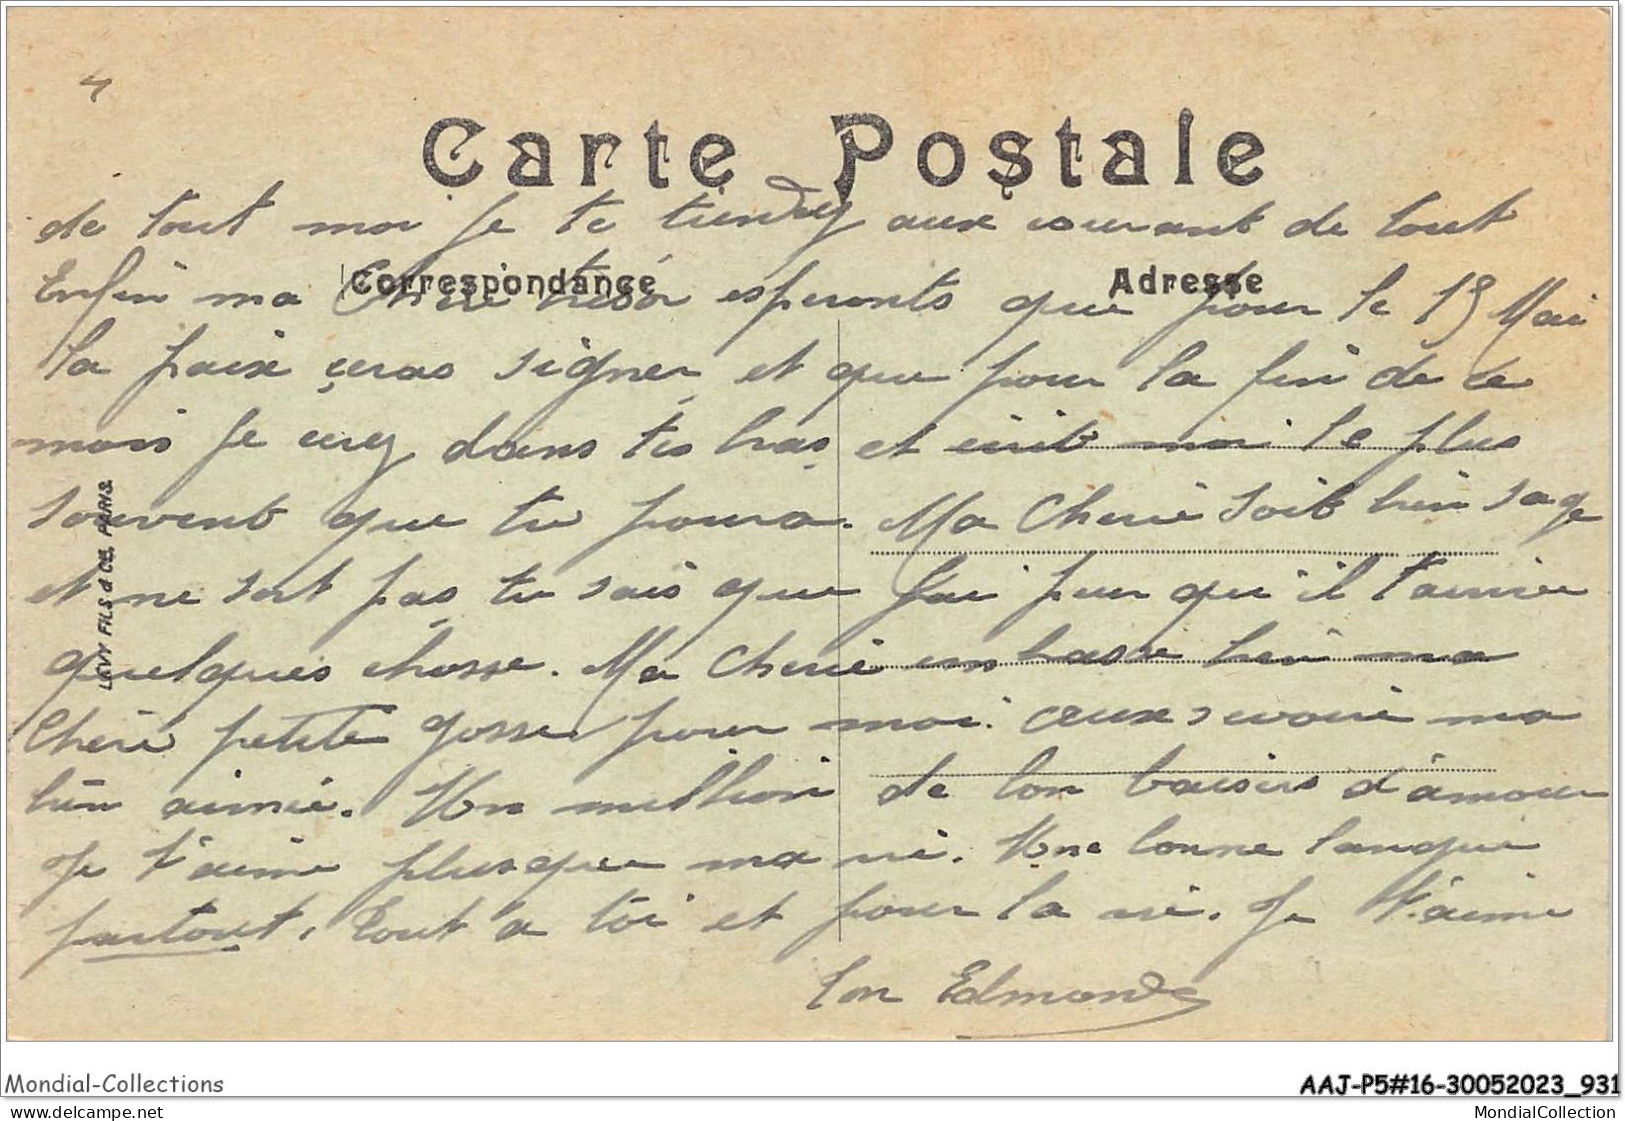 4
Carte Postale
de tout moi Je te tiendrey aux courant de tout
Correspondance Adresse
Enfin ma Cherie tresor esperonts que pour le 15 Mai
la paix ceras signer et que pour la fin de ce
mois Je cerey dans tes bras et ecrit moi le plus
souvent que tu poura. Ma Cherie soit bien sage
et ne sort pas tu sais que J'ai peur qu'il t'arrive
quelques chosse. Ma Cherie embrasse bien ma
Cherie petite gosse pour moi. ceux revoire ma
bien aimée. Un million de bon baisers d'amour
Je t'aime plusque ma vie. Une bonne langue
partout. tout a toi et pour la vie. Je t'aime
ton Edmond
LEVY FILS & Cie. PARIS.
Mondial-Collections
AAJ-P5#16-30052023_931
www.delcampe.net
MondialCollection